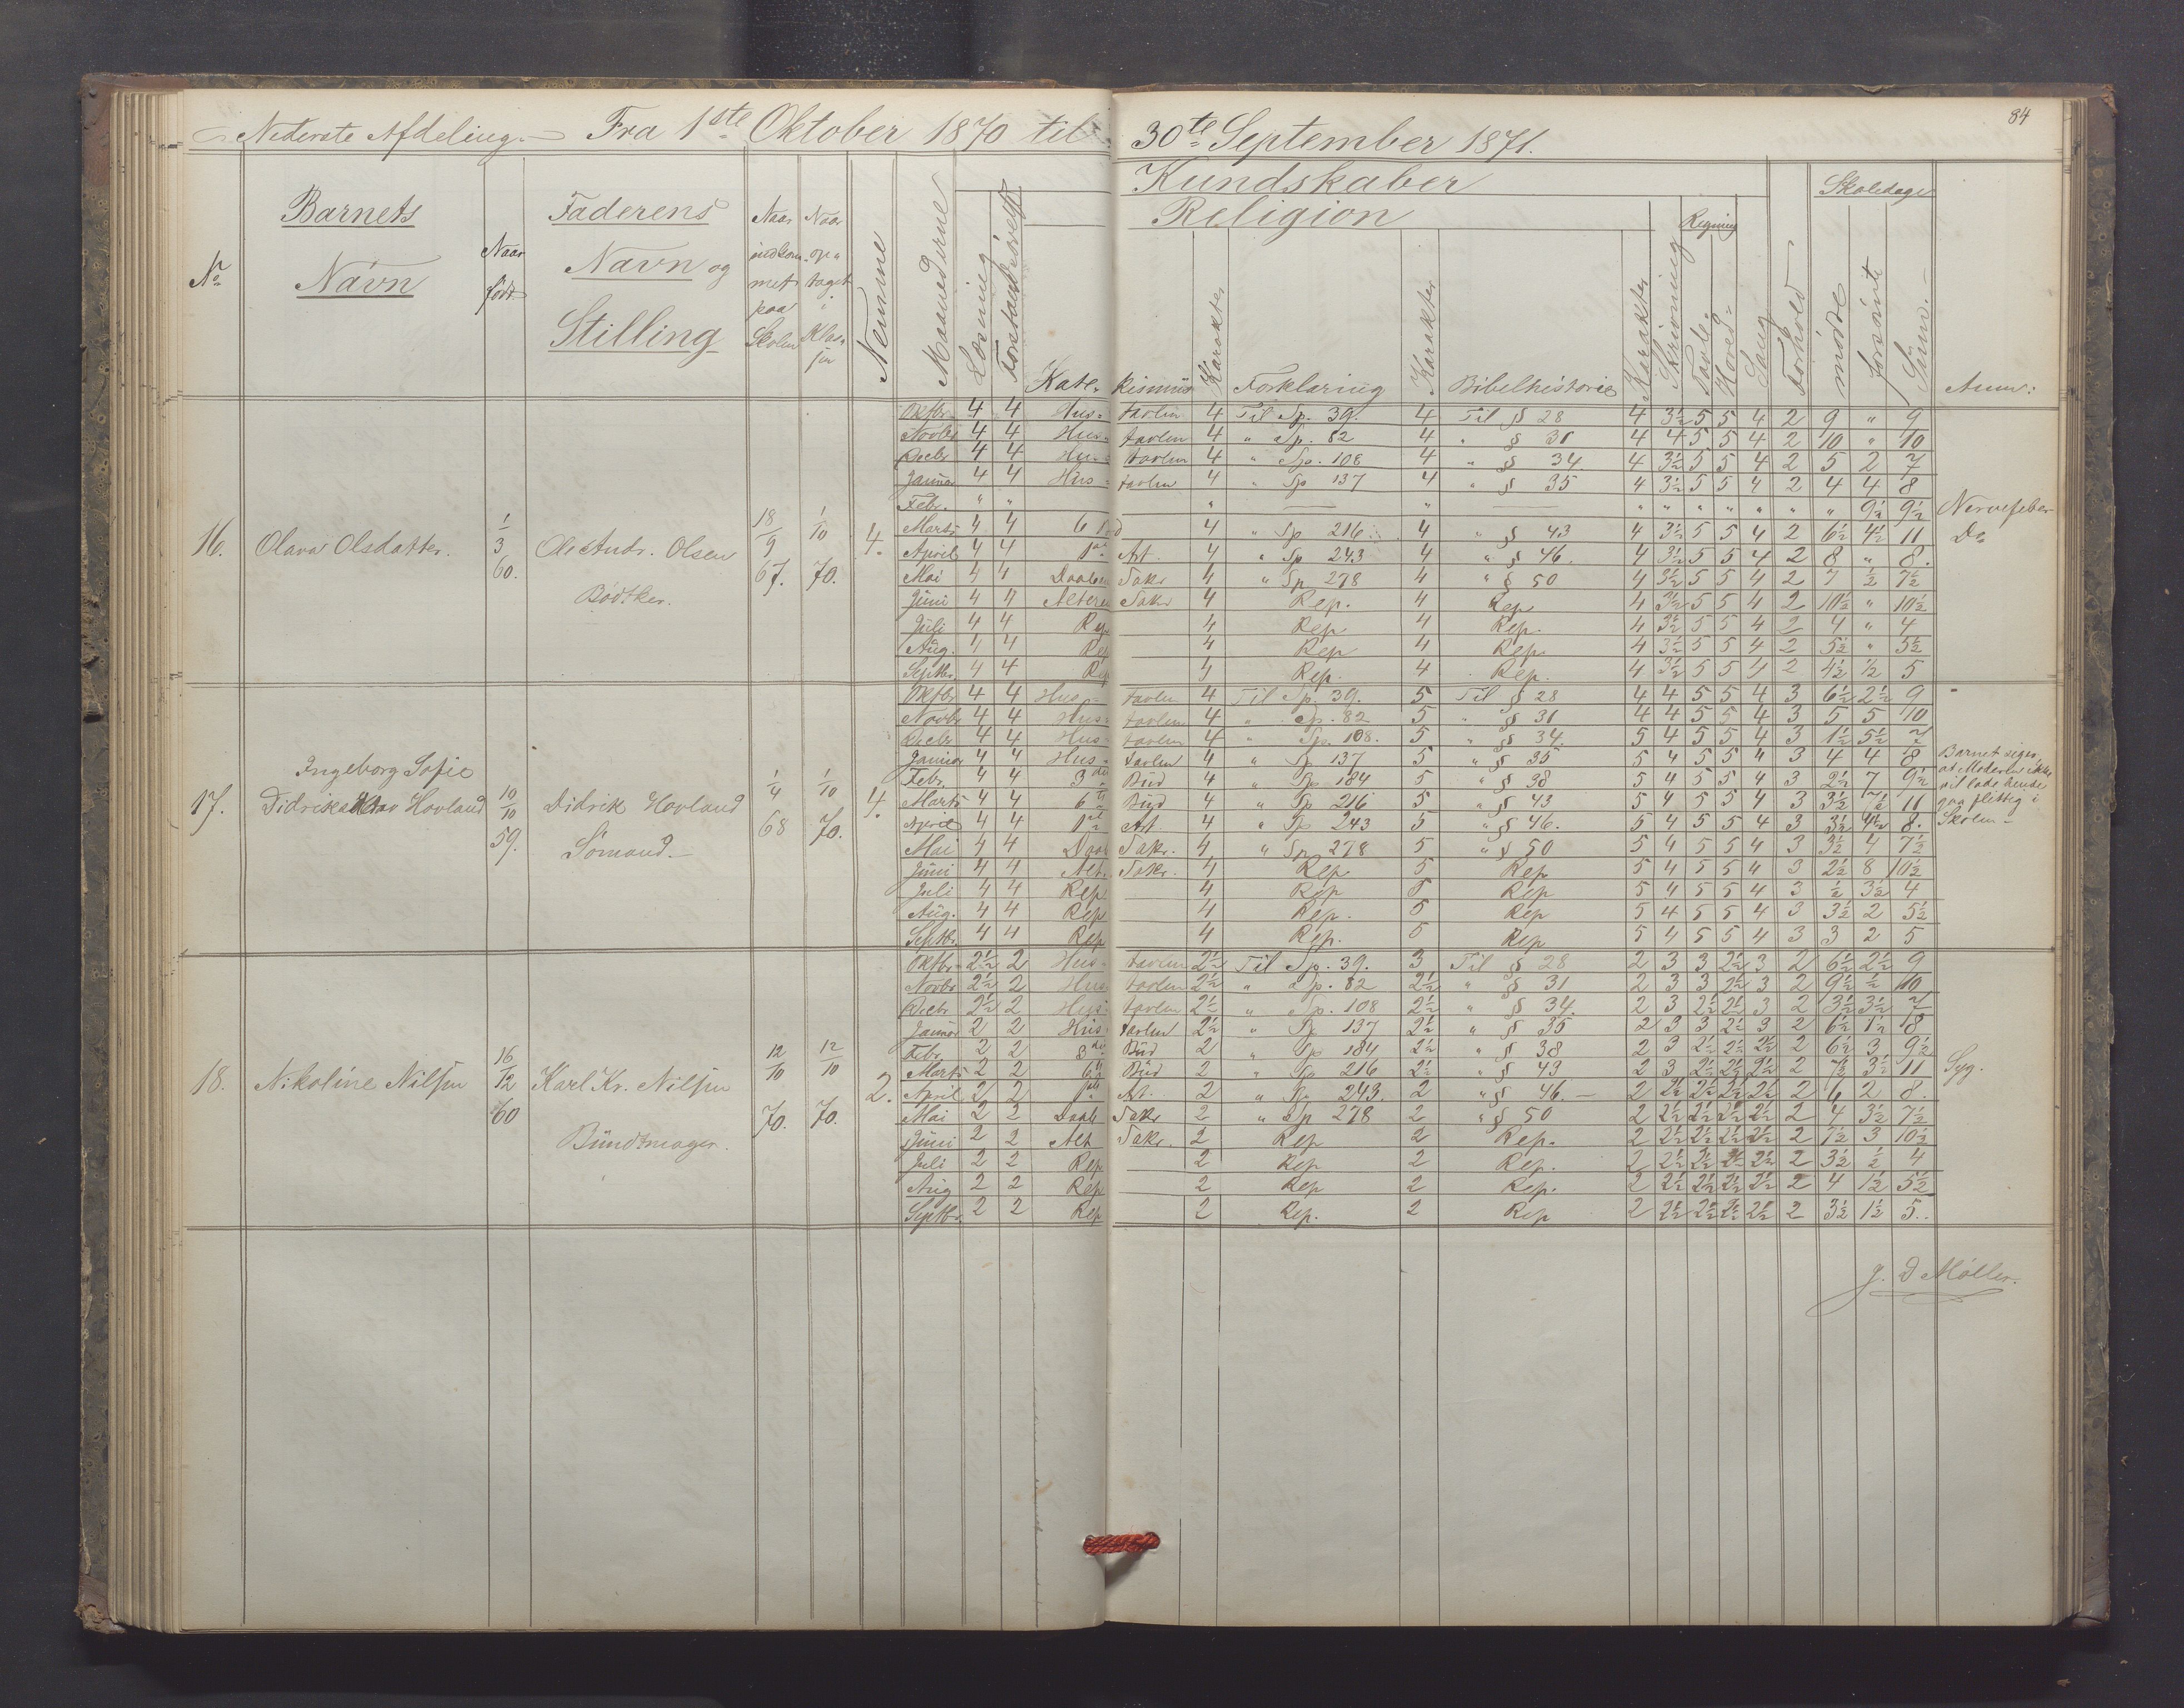 84
Nederste Afdeling. Fra 1ste Oktober 1870 til 30te September 1871.
Kundskaber
Religion
Regning
Skoledage
No
Barnets
Navn
Naar
født
Faderens
Navn og
Stilling
Naar
indkom-
met
paa
Skolen
Naar
op-
taget
i
Klas-
sen
Nemme
Maanederne
Læsning
Forstandsøvelse
Katekismus
Karakter
Forklaring
Karakter
Bibelhistorie
Karakter
Skrivning
Tavle-
Hoved-
Sang
Forhold
mødte
forsømte
Sum.
Anm:
16. Olava Olsdatter. 1/3 60. Ole Andr. Olsen Bødtker. 18/9 67. 1/10 70. 4.
Oktbr. 4 4 Hus- tavlen 4 Til Sp. 39. 4 Til § 28 4 3½ 5 5 4 2 9 " 9
Novbr 4 4 Hus- tavlen 4 " Sp. 82 4 " § 31 4 4 5 5 4 2 10 " 10
Decbr 4 4 Hus- tavlen 4 " Sp. 108 4 " § 34. 4 3½ 5 5 4 2 5 2 7
Januar 4 4 Hus- tavlen 4 " Sp 137 4 " § 35 4 3½ 5 5 4 2 4 4 8
Febr. " " " " " " " " " " " 9½ 9½ Nervefeber
Marts 4 4 6 4 " Sp 216 4 " § 43 4 3½ 5 5 4 2 6½ 4½ 11 Do
April 4 4 1ste Art. 4 " Sp 243 4 " § 46. 4 3½ 5 5 4 2 8 " 8.
Mai 4 4 Daabens Sakr 4 " Sp 278 4 " § 50 4 3½ 5 5 4 2 7 ½ 7½
Juni 4 4 Alterens Sakr 4 Rep. 4 Rep 4 3½ 5 5 4 2 10½ " 10½
Juli 4 4 Rep 4 Rep 4 Rep. 4 3½ 5 5 4 2 4 " 4
Aug. 4 4 Rep 4 Rep 4 Rep. 4 3½ 5 5 4 2 5½ " 5½
Septbr. 4 4 Rep 4 Rep. 4 Rep. 4 3½ 5 5 4 2 4½ ½ 5
17. Ingeborg Sofie Hovland 10/10 59. Didrik Hovland Sømand. 1/4 68 1/10 70. 4.
Oktbr 4 4 Hus- tavlen 4 Til Sp. 39. 5 Til § 28 4 4 5 5 4 3 6½ 2½ 9
Novbr 4 4 Hus- tavlen 4 " Sp. 82 5 " § 31 4 4 5 5 4 3 5 5 10
Decbr 4 4 Hus- tavlen 4 " Sp. 108. 5 " § 34. 5 4 5 5 4 3 1½ 5½ 7
Januar 4 4 Hus- tavlen 4 " Sp 137 5 " § 35 5 4 5 5 4 3 4 4 8
Febr. 4 4 3die Bud 4 " Sp 184 5 " § 38 5 4 5 5 4 3 2½ 7 9½
Marts 4 4 6te Bud 4 " Sp 216 5 " § 43 5 4 5 5 4 3 3½ 7½ 11
April 4 4 1ste Art. 4 " Sp 243 5 " § 46. 5 4 5 5 4 3 3½ 4½ 8.
Mai 4 4 Daab Sakr. 4 " Sp 278 5 " § 50 5 4 5 5 4 3 3½ 4 7½
Juni 4 4 Alt. Sakr. 4 Rep 5 Rep 5 4 5 5 4 3 2½ 8 10½
Juli 4 4 Rep 4 Rep 5 Rep 5 4 5 5 4 3 ½ 3½ 4
Aug. 4 4 Rep 4 Rep. 5 Rep 5 4 5 5 4 3 3½ 2 5½
Septbr. 4 4 Rep 4 Rep. 5 Rep 5 4 5 5 4 3 3 2 5
Barnet siger,
at Moderen ikke
vil lade hende
gaa flittig i
Skolen
18. Nikoline Nilsen 16/12 60 Karl Kr. Nilsen Bundtmager. 12/10 70. 12/10 70. 2.
Oktbr. 2½ 2 Hus- tavlen 2½ Til Sp. 39. 3 Til § 28 2 3 3 2½ 3 2 6½ 2½ 9
Novbr 2½ 2 Hus tavlen 2½ " Sp. 82 2½ " § 31 2 3 3 2½ 3 2 9½ ½ 10
Decbr 2½ 2 Hus- tavlen 2½ " Sp. 108 2½ " § 34. 2 3 2½ 2½ 3 2 3½ 3½ 7
Januar 2 2 Hus- tavlen 2½ " Sp 137 2½ " § 35 2 3 3 2½ 3 2 6½ 1½ 8
Febr. 2 2 3die Bud 2 " Sp 184 2½ " § 38 2 3 2½ 2½ 2½ 2 6½ 3 9½
Marts 2 2 6te Bud 2 " Sp 216 2½ " § 43 2 3 2½ 2½ 2½ 2 7½ 3½ 11 Syg.
April 2 2 1ste Art. 2 " Sp 243. 2 " § 46. 2 2½ 2½ 2½ 2½ 2 6 2 8.
Mai 2 2 Daab Sakr 2 " Sp 278 2 " § 50 2 2½ 2½ 2½ 2½ 2 4 3½ 7½
Juni 2 2 Alt Sakr. 2 Rep 2 Rep. 2 2½ 2½ 2½ 2½ 2 7½ 3 10½
Juli 2 2 Rep 2 Rep 2 Rep. 2 2½ 2½ 2½ 2½ 2 3½ ½ 4
Aug 2 2 Rep 2 Rep 2 Rep. 2 2½ 2½ 2½ 2½ 2 4 1½ 5½
Septbr. 2 2 Rep 2 Rep. 2 Rep 2 2½ 2½ 2½ 2½ 2 3½ 1½ 5.
J. D Møller.